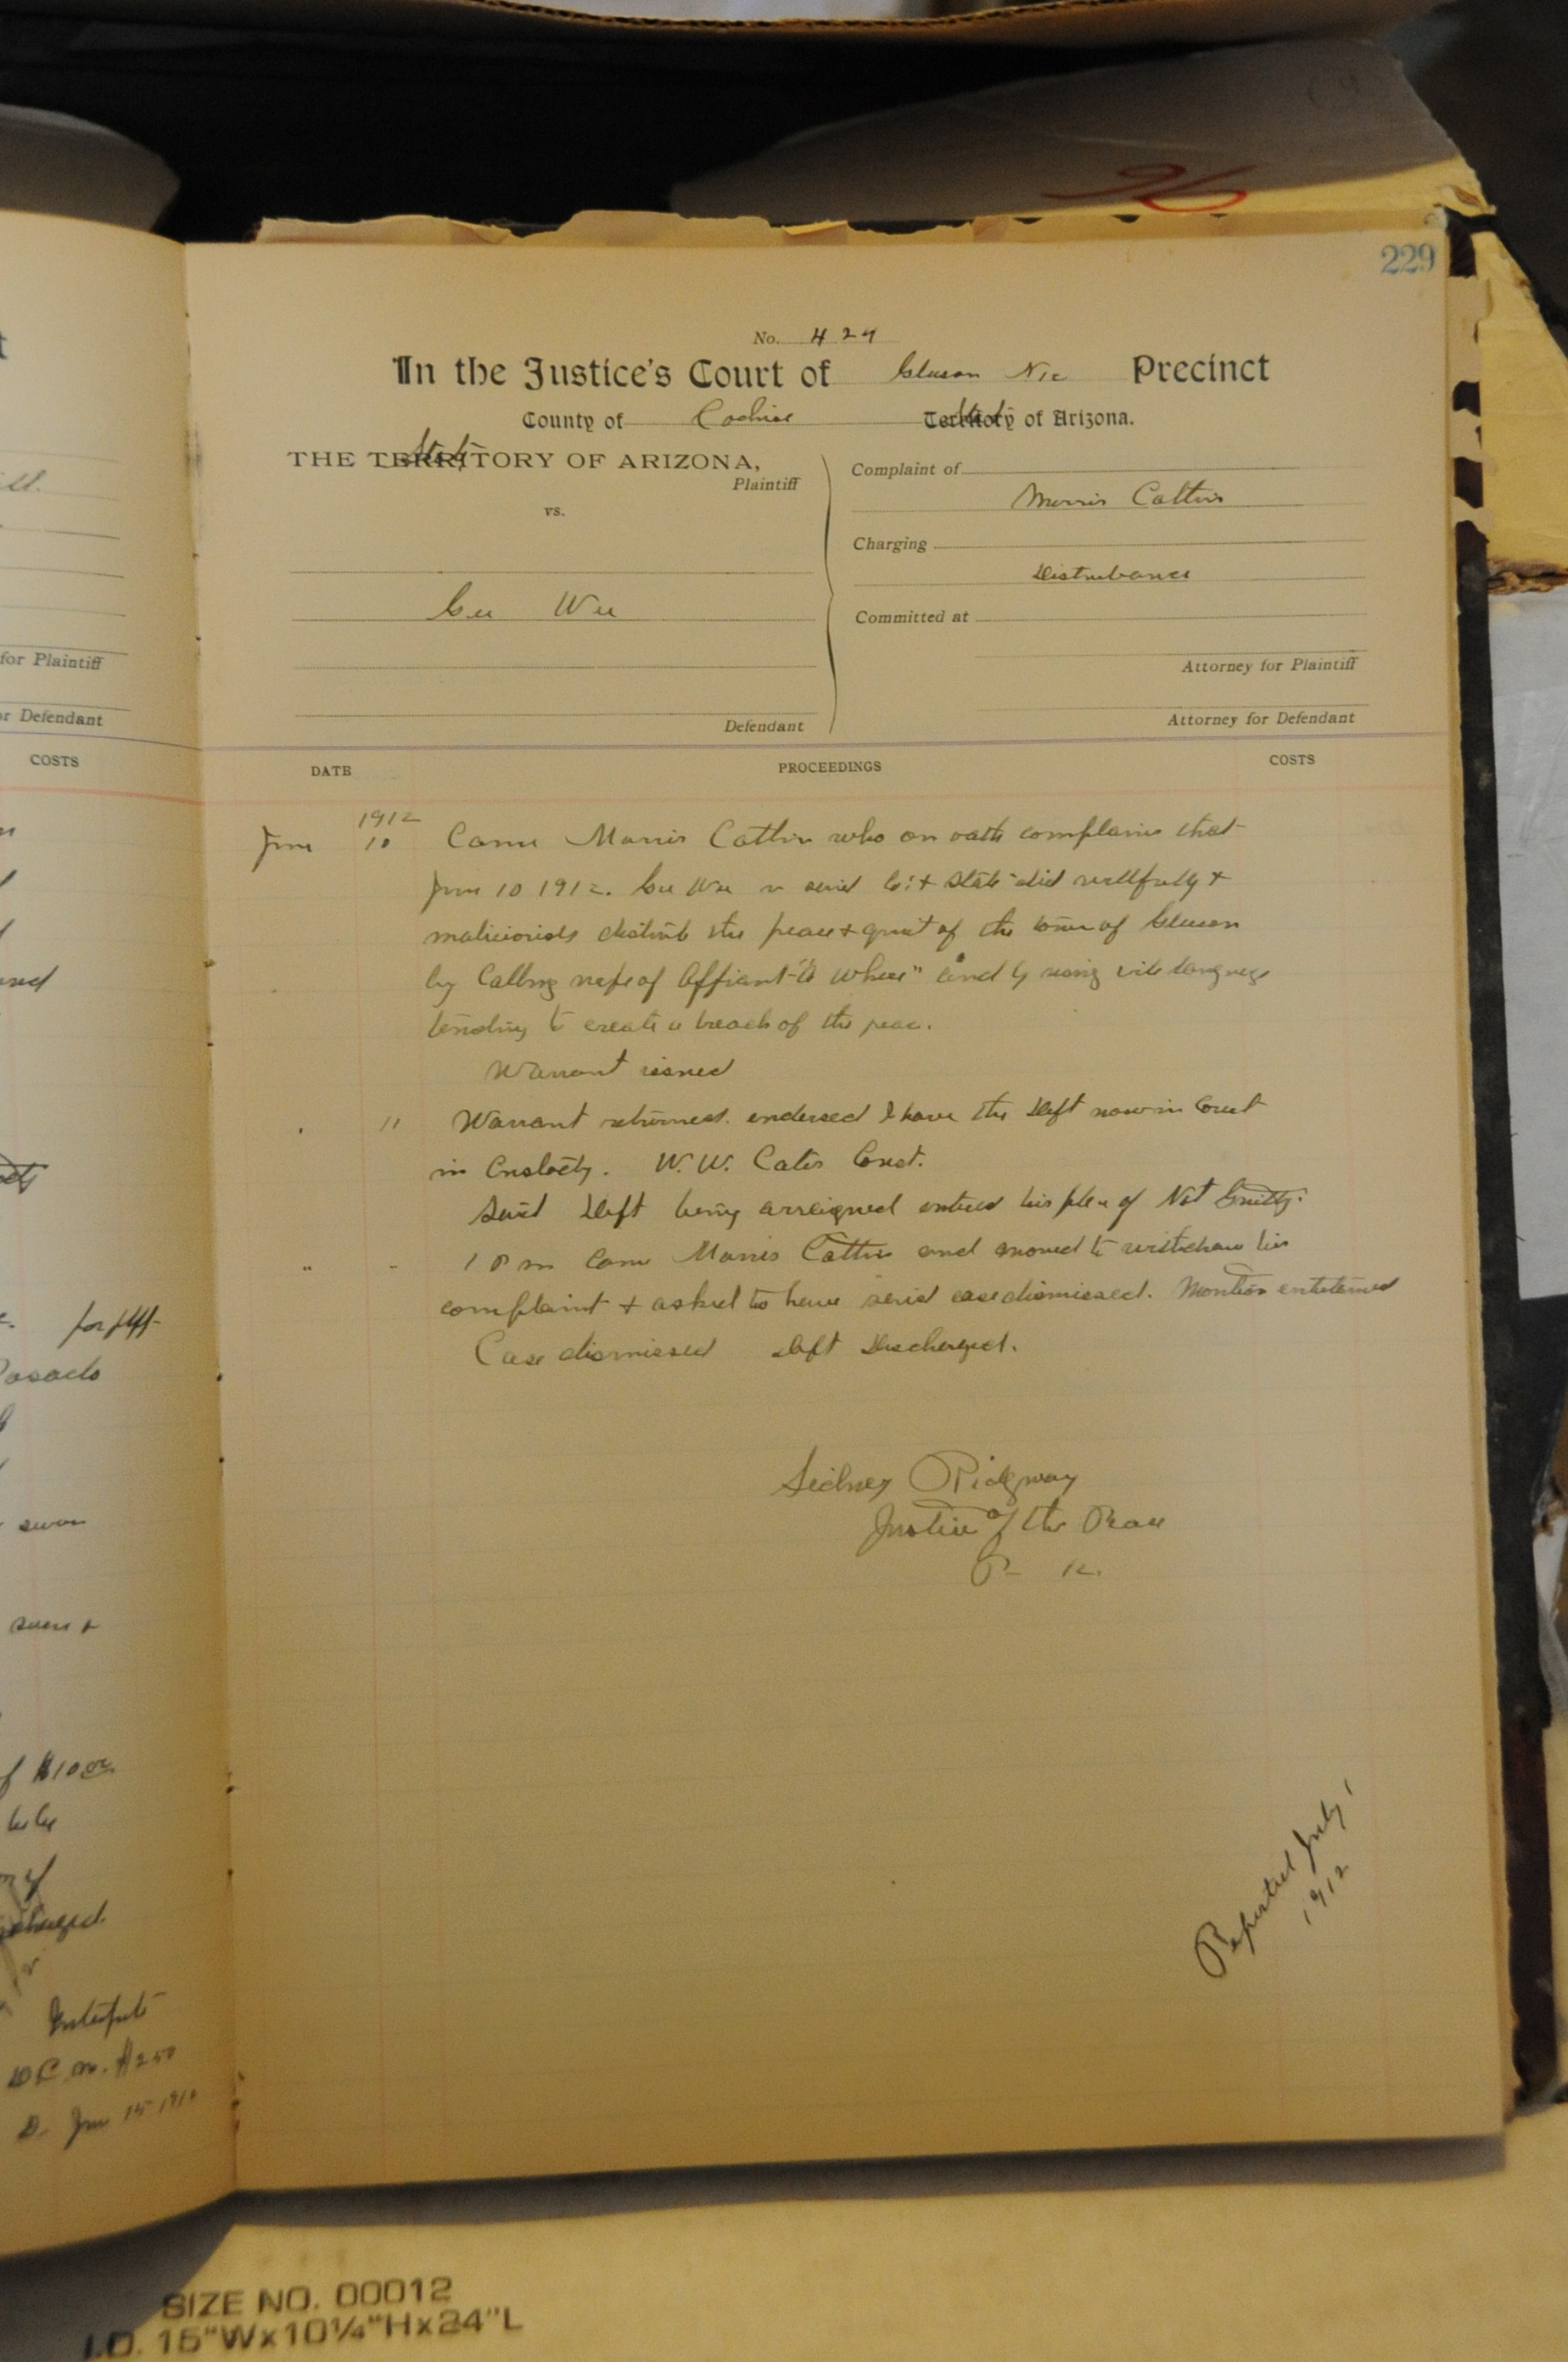 96
229
No. 429
In the Justice's Court of Gleeson No. Precinct
County of Cochise State of Arizona.
THE State OF ARIZONA,
Plaintiff
vs.
Gee Wee
Defendant
Complaint of
Morris Catlin
Charging
Disturbance
Committed at
Attorney for Plaintiff
Attorney for Defendant
DATE
PROCEEDINGS
COSTS
1912
June 10 Came Morris Catlin who on oath complains that
June 10 1912. Gee Wee in said Co: + State did willfully +
maliciously disturb the peace + quiet of the town of Gleeson
by calling wife of Affiant "a whore" and by using vile language
tending to create a breach of the peace.
Warrant issued
" 11 Warrant returned. endorsed I have the Deft now in Court
in Custody. W. W. Cates Const.
Said Deft being arraigned entered his plea of Not Guilty.
" " 1 P m Came Morris Catlin and moved to withdraw his
complaint + asked to have said case dismissed. Motion entertained
Case dismissed Deft Discharged.
Sidney Ridgway
Justice of the Peace
Reported July 1
1912
for Plaintiff
or Defendant
COSTS
for plff
swon
of $10 00
Interpreter
$2 50
D. June 15 1912
SIZE NO. 00012
I.D. 15"Wx10¼"Hx24"L